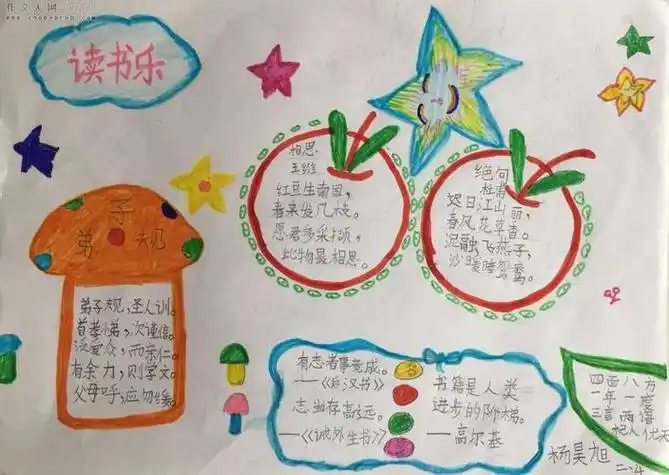 作文人网
读书乐
弟子规
弟子规，圣人训。
首孝悌，次谨信。
泛爱众，而亲仁。
有余力，则学文。
父母呼，应勿缓。
相思
王维
红豆生南国，
春来发几枝。
愿君多采撷，
此物最相思。
绝句
杜甫
迟日江山丽，
春风花草香。
泥融飞燕子，
沙暖睡鸳鸯。
有志者事竟成。
——《后汉书》
志当存高远。
——《诫外生书》
书籍是人类
进步的阶梯。
——高尔基
四面八方
一年一度
三言两语
杞人忧天
杨昊旭